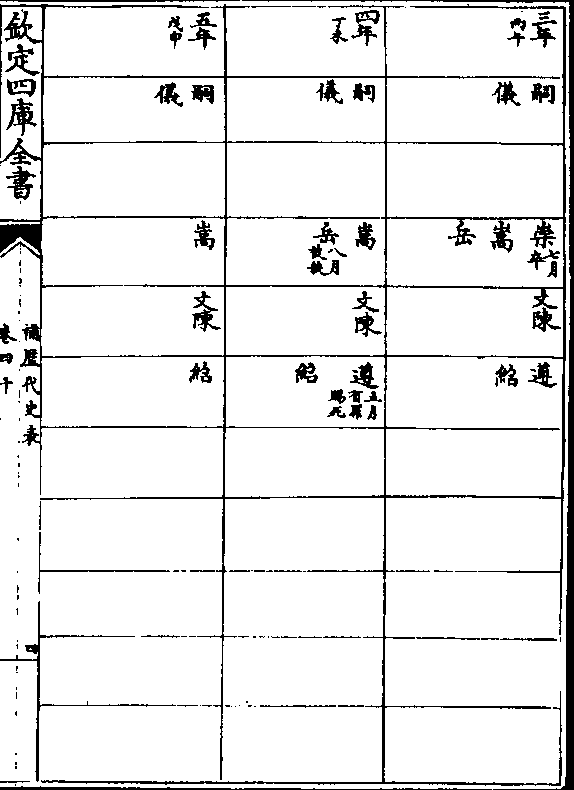 欽定四庫全書
補歷代史表
卷四十
四
三年
丙午
嗣
儀
崇
七月卒
嵩
岳
文陳
遵
紹
四年
丁未
嗣
儀
嵩
岳
八月
文陳
遵
五月有罪賜死
紹
五年
戊申
嗣
儀
嵩
文陳
紹